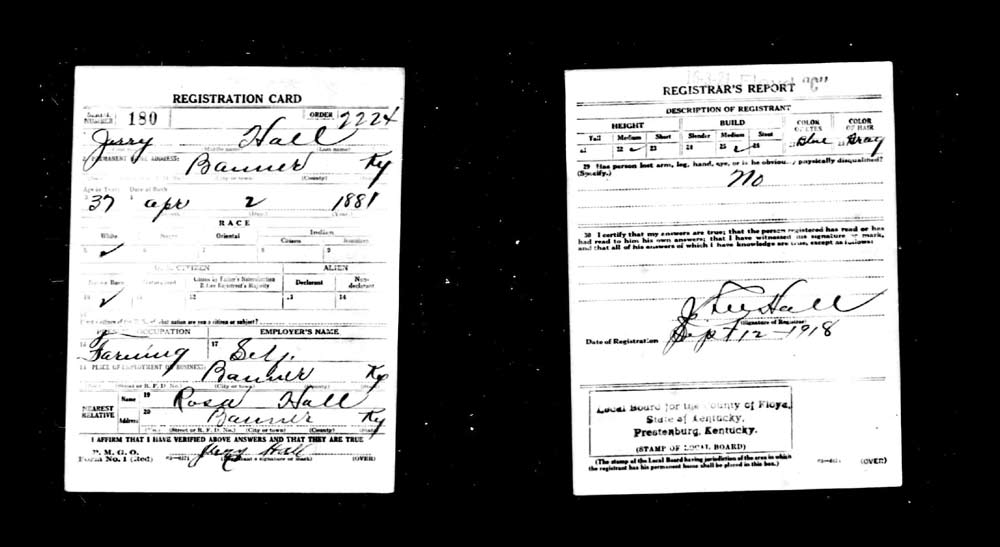 REGISTRATION CARD
SERIAL NUMBER 180 ORDER 2224
Jerry Hall
(Last name)
2 PERMANENT HOME ADDRESS:
Banner Ky
(City or town) (County)
Age in Years Date of Birth
37 apr 2 1881
RACE
White Negro Oriental Indian
Citizen
5 ✓ 6 7 8 9
U. S. CITIZEN ALIEN
Native Born Naturalized Citizen by Father's Naturalization Before Registrant's Majority Declarant Non-declarant
10 ✓ 11 12 13 14
of what nation are you a citizen or subject?
PRESENT OCCUPATION EMPLOYER'S NAME
16 Farming 17 Self
18 PLACE OF EMPLOYMENT OR BUSINESS:
Banner Ky
(No.) (Street or R. F. D. No.) (City or town) (County) (State)
NEAREST RELATIVE
Name 19 Rosa Hall
Address 20 Banner Ky
(No.) (Street or R. F. D. No.) (City or town) (County) (State)
I AFFIRM THAT I HAVE VERIFIED ABOVE ANSWERS AND THAT THEY ARE TRUE
P. M. G. O.
Form No. 1 (Red) Jerry Hall
(Registrant's signature or mark) (OVER)
REGISTRAR'S REPORT
DESCRIPTION OF REGISTRANT
HEIGHT BUILD COLOR OF EYES COLOR OF HAIR
Tall Medium Short Slender Medium Stout
21 22 ✓ 23 24 25 ✓ 26 27 Blue 28 Gray
29 Has person lost arm, leg, hand, eye, or is he obviously physically disqualified?
(Specify.)
No
30 I certify that my answers are true; that the person registered has read or has
had read to him his own answers; that I have witnessed his signature or mark,
and that all of his answers of which I have knowledge are true, except as follows:
Hall
(Signature of Registrar)
Date of Registration Sept 12 - 1918
Local Board for the County of Floyd,
State of Kentucky,
Prestonburg, Kentucky.
(STAMP OF LOCAL BOARD)
(The stamp of the Local Board having jurisdiction of the area in which
the registrant has his permanent home shall be placed in this box.)
(OVER)